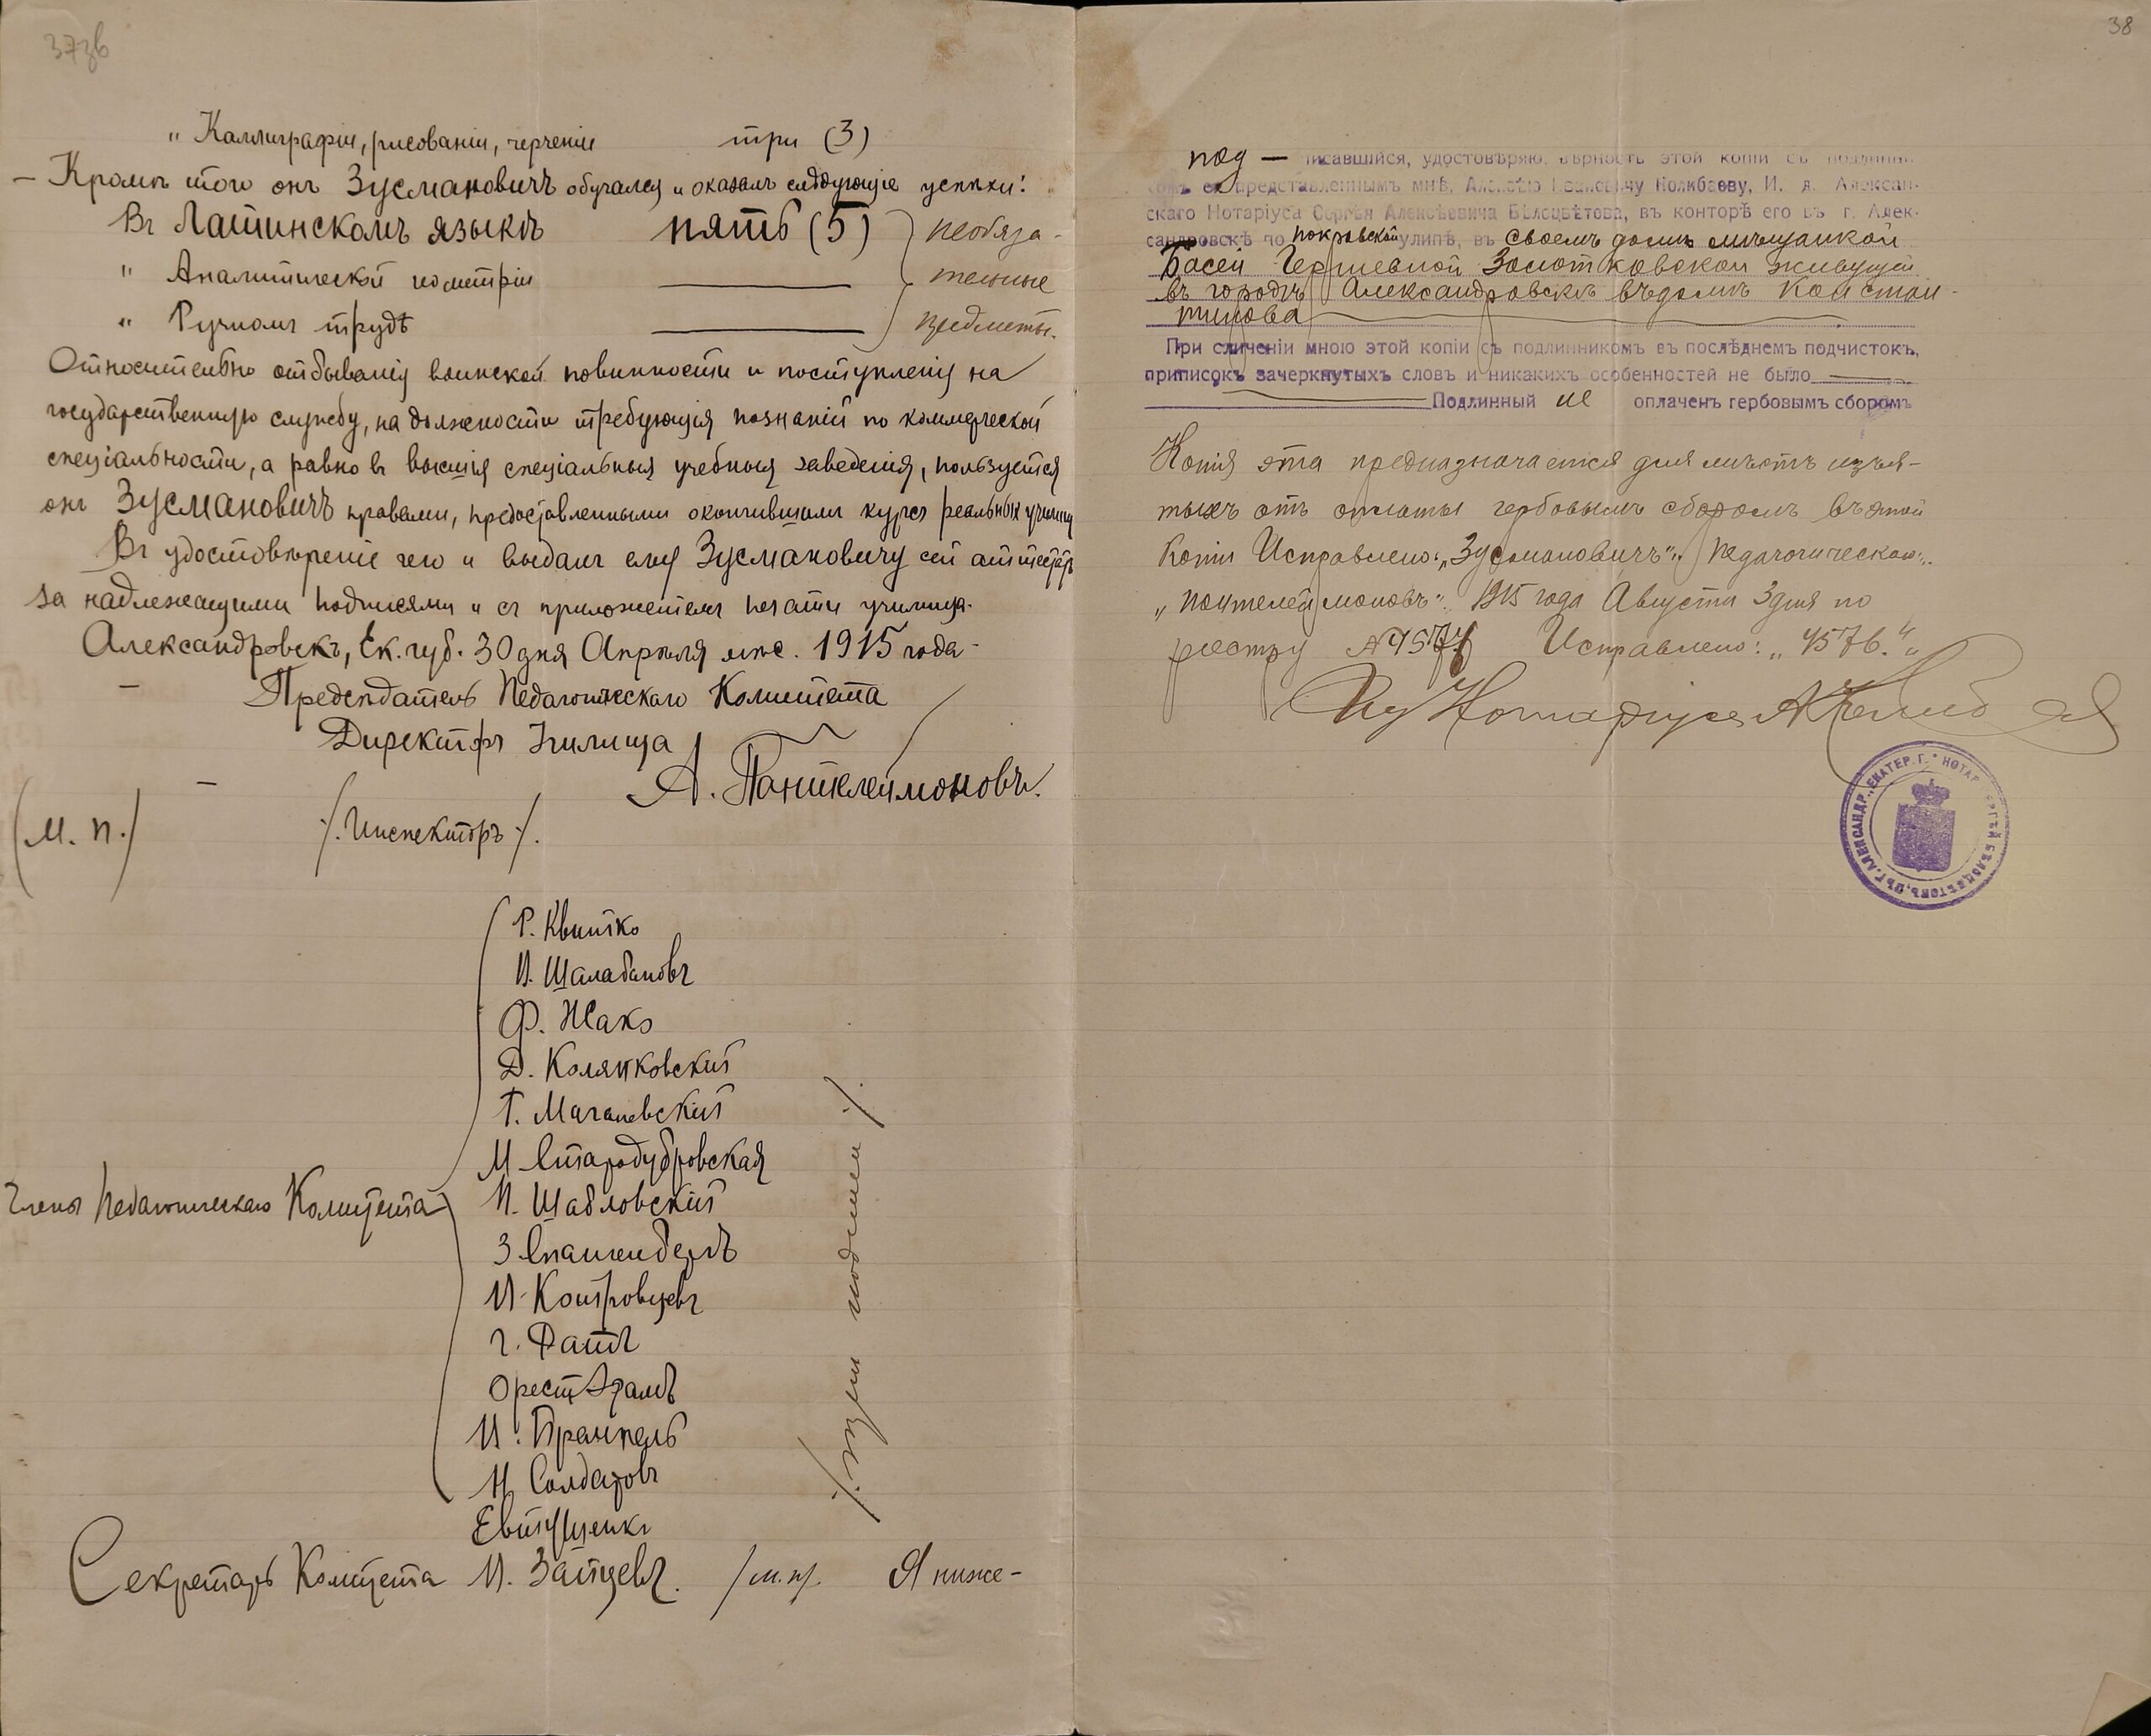 37зв
" Каллиграфіи, рисованіи, черченіи три (3)
— Кромѣ того онъ Зусмановичъ обучался и оказалъ слѣдующіе успѣхи:
Въ Латинскомъ языкѣ пять (5) необяза-
" Аналитической геометріи — тельные
" Ручномъ трудѣ — предметы.
Относительно отбыванія воинской повинности и поступленія на
государственную службу, на должности требующія познаній по коммерческой
спеціальности, а равно въ высшія спеціальныя учебныя заведенія, пользуется
онъ Зусмановичъ правами, предоставленными окончившимъ курсъ реальныхъ училищ
Въ удостовѣреніе чего и выданъ ему Зусмановичу сей аттестатъ
за надлежащими подписями и съ приложеніемъ печати училища.
Александровскъ, Ек. губ. 30 дня Апрѣля мѣс. 1915 года —
— Предсѣдатель Педагогическаго Комитета
Директоръ Училища
А. Пантелеймоновъ.
(М. П.) /. Инспекторъ /.
Р. Квитко
И. Шалабановъ
Ф. Жако
Д. Колянковскій
Т. Магалевскій
М Стародубровская
Члены Педагогическаго Комитета П. Шабловскій
З Спангенбергъ
И. Контровцевъ
Г. Фатъ
Орестъ Адамъ
И. Пранпель
Н Солдатовъ
Евтушенко
Секретарь Комитета И. Зайцевъ. /м. п/. Я ниже-
38
под — писавшійся, удостовѣряю, вѣрность этой копіи съ подлинни-
комъ ея представленнымъ мнѣ, Алексѣю Ивановичу Колибаеву, И. д. Алексан-
скаго Нотаріуса Сергѣя Алексѣевича Бѣлоцвѣтова, въ конторѣ его въ г. Алек-
сандровскѣ по покровской улицѣ, въ своемъ домѣ мѣщанкой
Басей Гершевной Золотковской живущей
въ городѣ Александровскѣ въ домѣ Констан-
тинова
При сличеніи мною этой копіи съ подлинникомъ въ послѣднемъ подчистокъ,
приписокъ зачеркнутыхъ словъ и никакихъ особенностей не было —
— Подлинный не оплаченъ гербовымъ сборомъ
Копія эта предназначается для мѣстъ изъя-
тыхъ отъ оплаты гербовымъ сборомъ въ этой
копіи Исправлено: „Зусмановичъ“, „Педагогическаго“,
„Пантелеймоновъ“. 1915 года Августа 3 дня по
реестру № 4576 Исправлено: „4576.“
Ид Нотаріуса А Колибаев